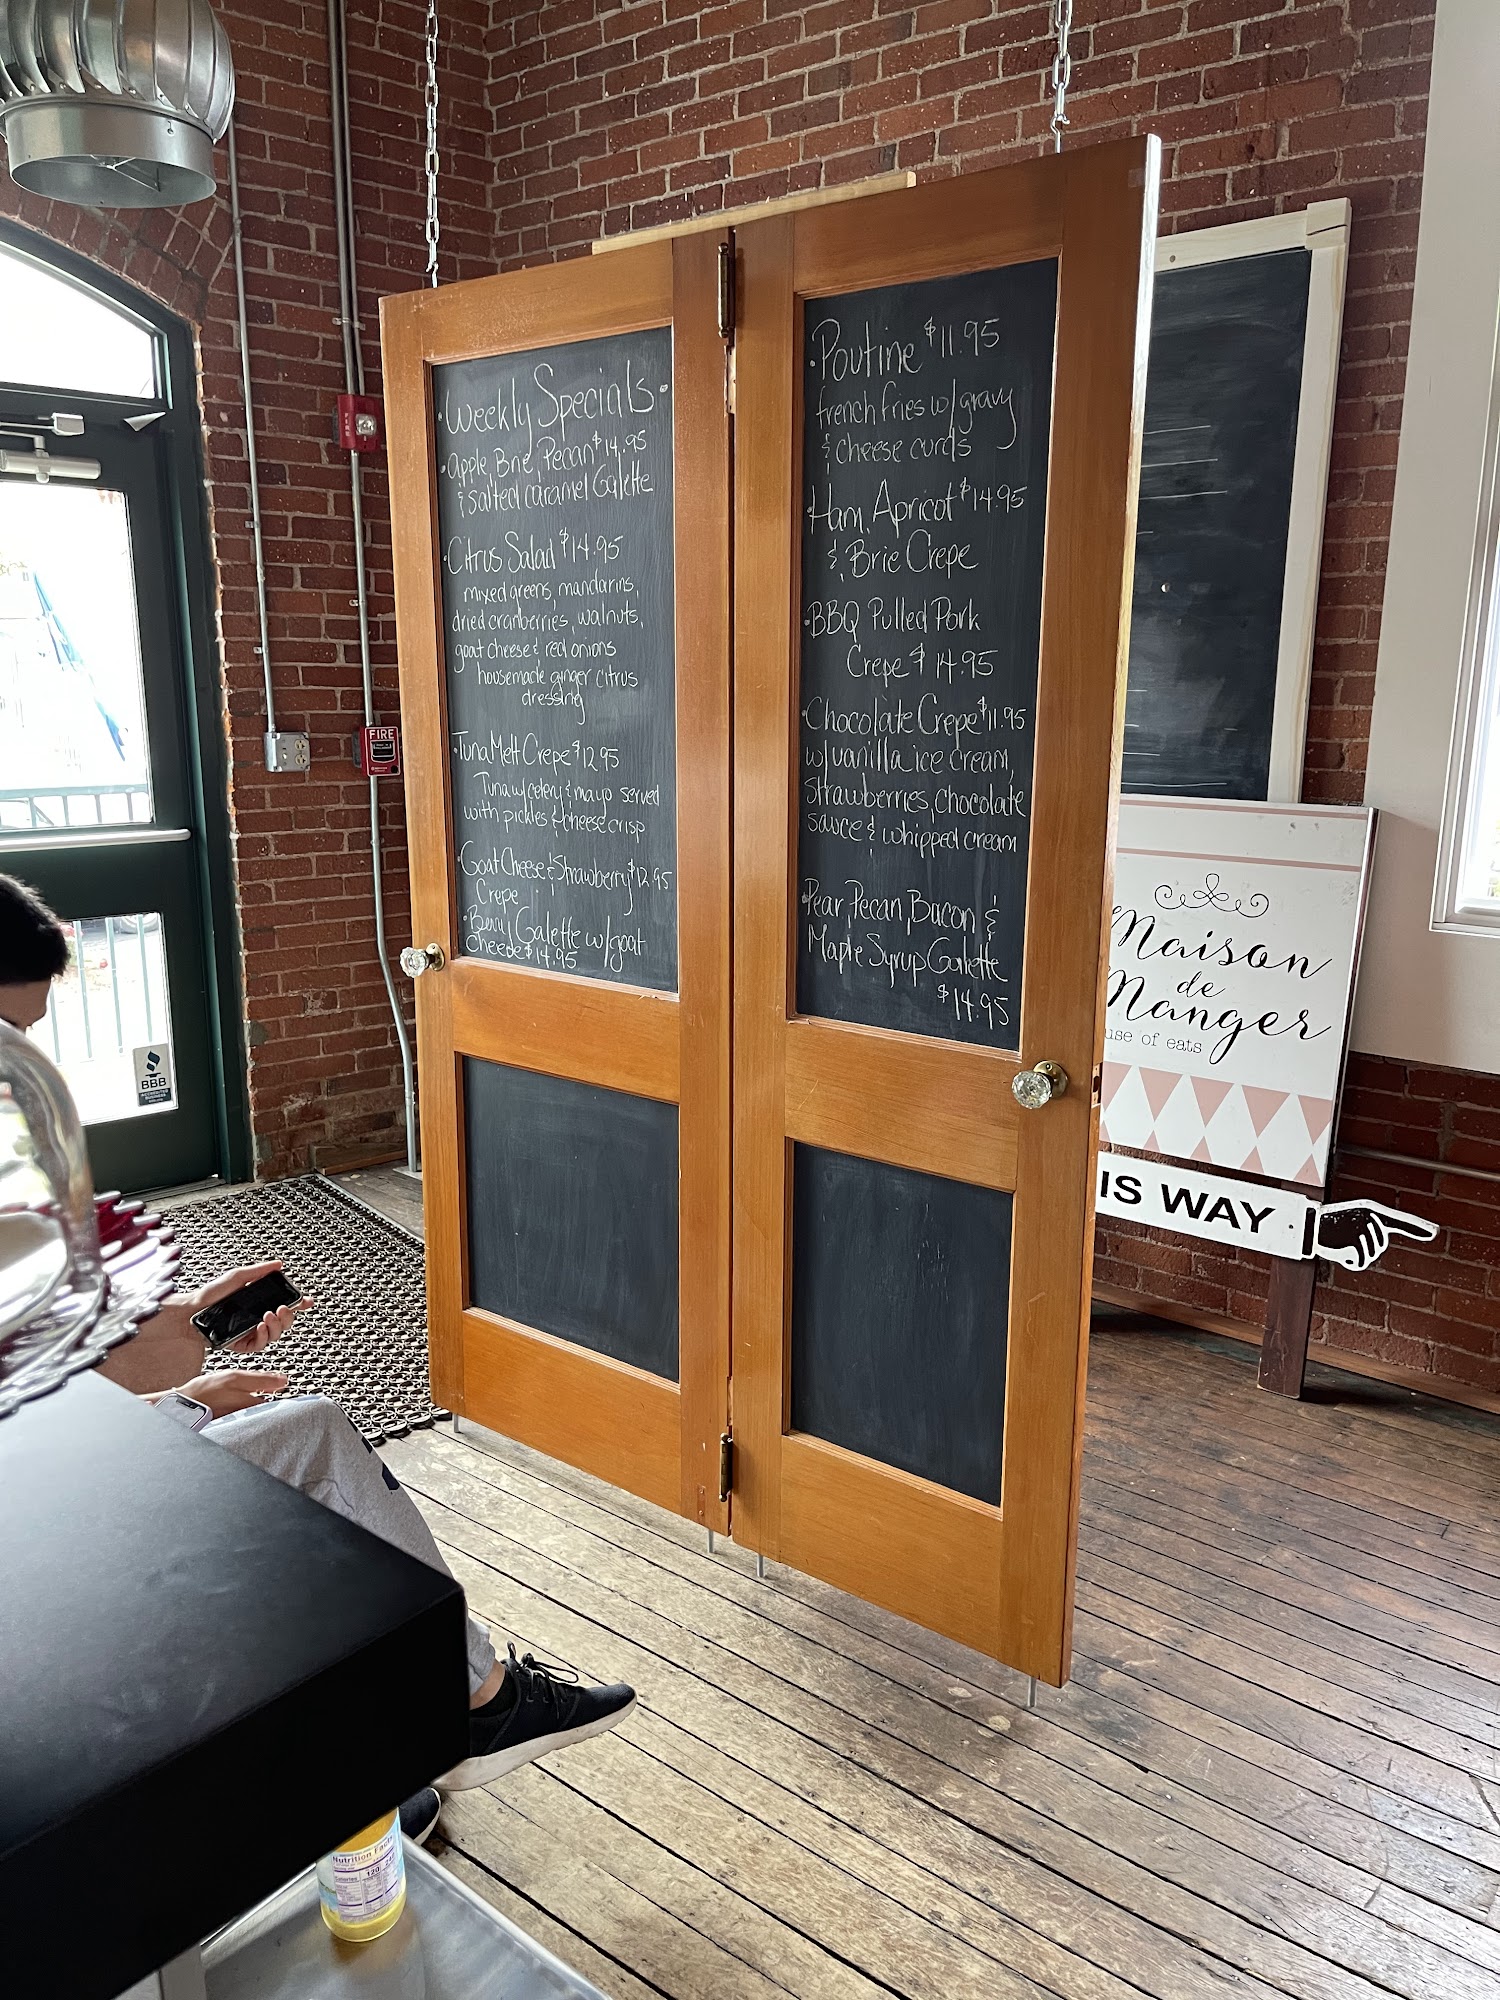 Weekly Specials
Apple, Brie, Pecan $14.95
& salted caramel Galette
Citrus Salad $14.95
mixed greens, mandarins,
dried cranberries, walnuts,
goat cheese & red onions
housemade ginger citrus
dressing
Tuna Melt Crepe $12.95
Tuna w/celery & mayo served
with pickles & cheese crisp
Goat Cheese & Strawberry $12.95
Crepe
Galette w/goat
cheese $14.95
Poutine $11.95
french fries w/ gravy
& cheese curds
Ham, Apricot $14.95
& Brie Crepe
BBQ Pulled Pork
Crepe $14.95
Chocolate Crepe $11.95
w/vanilla ice cream,
strawberries, chocolate
sauce & whipped cream
Pear, Pecan, Bacon &
Maple Syrup Galette
$14.95
Maison
de
Manger
use of eats
IS WAY
FIRE
FIRE
BBB
ACCREDITED
BUSINESS
Nutrition Facts
Calories 120